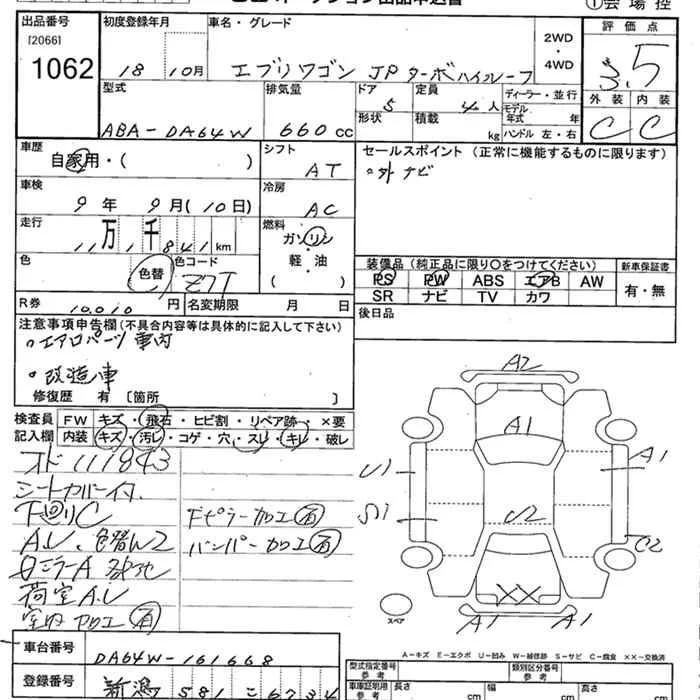 ①会場控
出品番号
[2066]
1062
初度登録年月
18 10月
車名・グレード
エブリワゴン JPターボハイルーフ
2WD
・
4WD
評価点
3.5
外装 内装
C C
型式
ABA-DA64W
排気量
660cc
ドア
5
定員
4人
形状
積載
kg
ディーラー・並行
モデル
年式 年
ハンドル 左・右
車歴
自家用・( )
シフト
AT
セールスポイント (正常に機能するものに限ります)
°外 ナビ
車検
9年 9月(10日)
冷房
AC
走行
11万1千841km
燃料
ガソリン
・
軽・油
( )
色
色替
色コード
Z7T
装備品 (純正品に限り○をつけてください)
PS PW ABS エアB AW
SR ナビ TV カワ
新車保証書
有・無
R券
10,010円
名変期限 月 日
後日品
注意事項申告欄(不具合内容等は具体的に記入して下さい)
°エアロパーツ 車内
°改造車
修復歴 有 [箇所 ]
検査員
記入欄
FW キズ・飛石・ヒビ割・リペア跡・×要
内装 キズ・汚レ・コゲ・穴・スレ・キレ・破レ
オド111843
シートカバー
下回りC
A.U、色替
ミラーA
荷室A.U
室内 加工 有
ピラー加工 有
バンパー加工 有
A2
A1
U1
S1
U2
A1
C2
XX
A1
A1
スペア
A-キズ E-エクボ U-凹み W-補修跡 S-サビ C-腐食 ××-交換済
車台番号
DA64W-161668
登録番号
新潟 581 こ6734
型式指定番号
参考
類別区分番号
参考
車庫証明用
参考
長さ
cm
幅
cm
高さ
cm